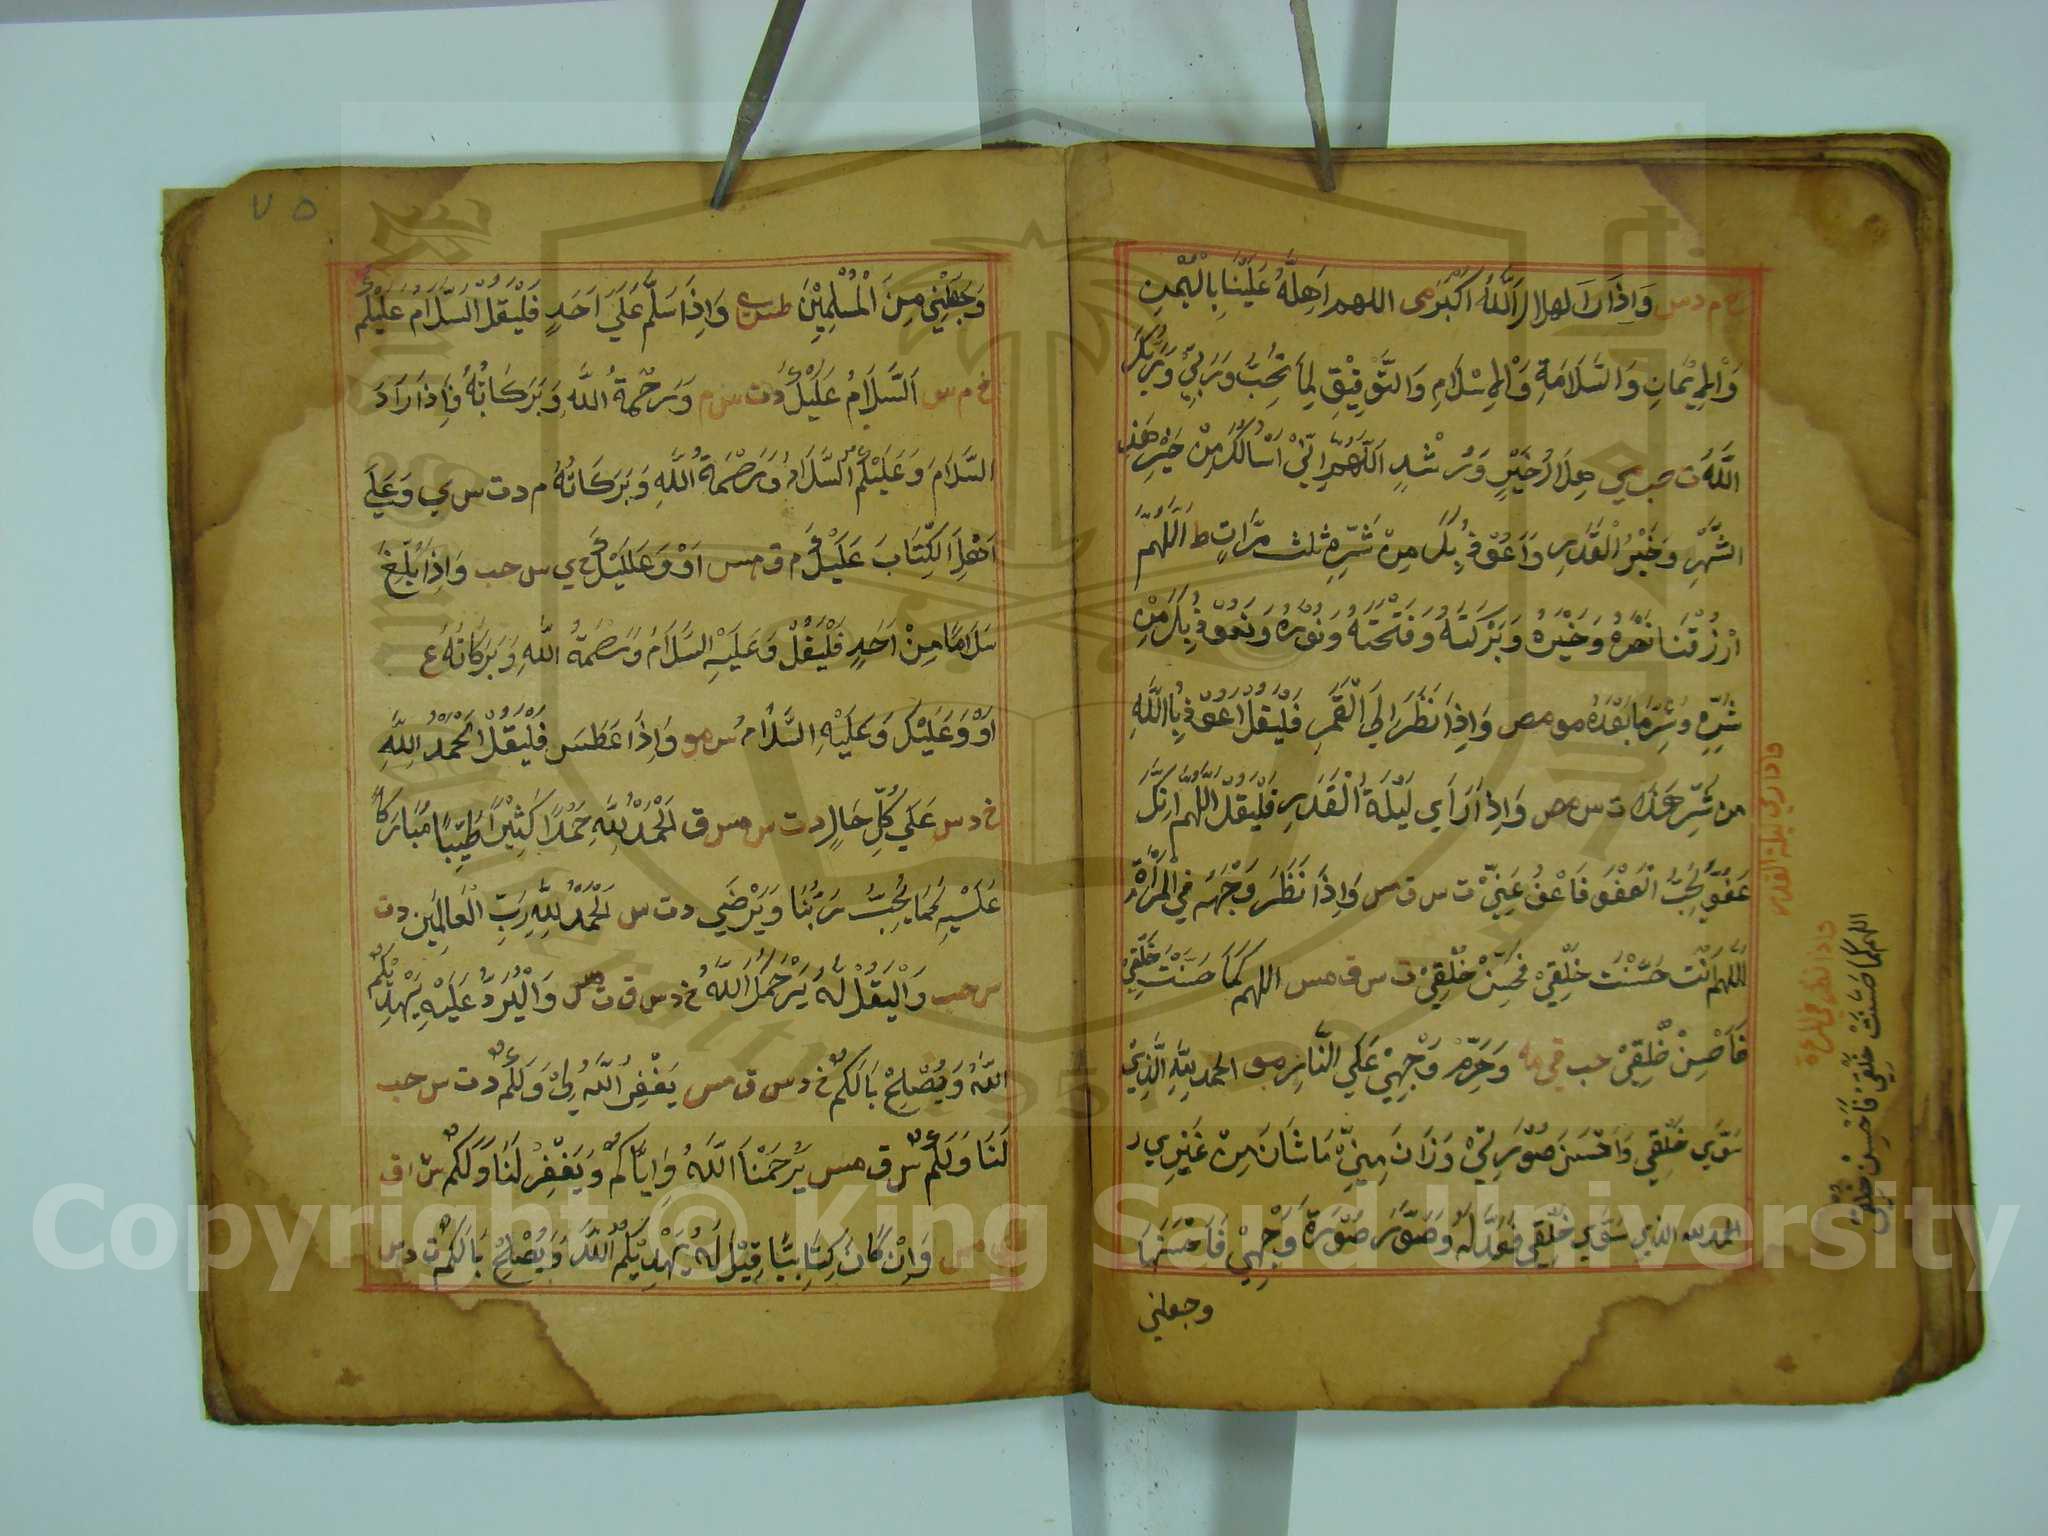 خ م د س وَاِذَا رَاَ لهلالَ اَللّٰهُ اَكْبَر مى اللهم اَهِلَّهُ عَلَيْنَا بِالْيُمْنِ
وَالْاِيْمَانِ وَالسَّلَامَةِ وَالْاِسْلَامِ وَالتَّوْفِيْقِ لِمَا تُحِبُّ وَرَبِّيْ وَرَبُّكَ
اللّٰهُ ت حب مي هِلَالُ خَيْرٍ وَرُشْدٍ اَللّٰهُمَّ اِنِّيْ اَسْاَلُكَ مِنْ خَيْرِ هٰذَا
الشَّهْرِ وَخَيْرِ الْقَدَرِ وَاَعُوْذُ بِكَ مِنْ شَرِّهِ ثلث مَرَّاتٍ ط اَللّٰهُمَّ
ارْزُقْنَا نَصْرَهُ وَخَيْرَهُ وَبَرَكَتَهُ وَفَتْحَتَهُ وَنُوْرَهُ وَنَعُوْذُ بِكَ مِنْ
شَرِّهِ وَشَرِّ مَا بَعْدَهُ مو مص وَاِذَا نَظَرَ اِلَي الْقَمَرِ فَلْيَقُلْ اَعُوْذُ بِاللّٰهِ
من شَرِّ هٰذَا ت س مص وَاِذَا رَاَي لَيْلَةَ الْقَدَرِ فَلْيَقُلْ اللّٰهُمَّ اِنَّكَ
عَفُوٌّ تُحِبُّ الْعَفْوَ فَاعْفُ عَنِّيْ ت س ق مس وَاِذَا نَظَرَ وَجْهَهُ فِي الْمِرْاٰةِ
اللّٰهُمَّ اَنْتَ حَسَّنْتَ خَلْقِيْ فَحَسِّنْ خُلْقِيْ ت س ق مس اللهم كَمَا حَسَّنْتَ خَلْقِيْ
فَاَحْسِنْ خُلُقِيْ حب قي مه وَحَرِّمْ وَجْهِيْ عَلَي النَّارِ مو الحمد لِلّٰهِ الَّذِيْ
سَوّٰي خَلْقِي وَاَحْسَنَ صُوْرَتِيْ وَزَانَ مِنِّيْ مَا شَانَ مِنْ غَيْرِيْ ر
الحمد لله الذي سَوّٰي خَلْقِي فَعَدَّلَهُ وَصَوَّرَ صُوْرَةَ وَجْهِيْ فَاَحْسَنَهَا
وجعلني
واذا راي ليلة القدر
واذا نظر في المرءة
اللهم كَمَا حَسَّنْتَ خَلْقِيْ فَاَحْسِنْ خُلُقِيْ
٧٥
وَجَعَلَنِيْ مِنَ الْمُسْلِمِيْنَ طس ي وَاِذَا سَلَّمَ عَلَيٰ اَحَدٍ فَلْيَقُلْ اَلسَّلَامُ عَلَيْكُمْ
خ م س اَلسَّلَامُ عَلَيْكُمْ د ت س م وَرَحْمَةُ اللّٰهِ وَبَرَكَاتُهُ فَاِذَا رَادَ
السَّلَامَ وَعَلَيْكُمُ السَّلَامُ وَرَحْمَةُ اللّٰهِ وَبَرَكَاتُهُ م د ت س ي وَعَلَيٰ
اَهْلِ الكِتَابَ عَلَيْكُمْ م ق مس اَوْ وَعَلَيْكُمْ خ ي س حب وَاِذَا بُلِّغَ
سَلَامًا مِنْ اَحَدٍ فَلْيَقُلْ وَعَلَيْهِ السَّلَامُ وَرَحْمَةُ اللّٰهِ وَبَرَكَاتُهُ ع
اَوْ وَعَلَيْكَ وَعَلَيْهِ السَّلَامُ س مو وَاِذَا عَطَسَ فَلْيَقُلْ اَلْحَمْدُ لِلّٰهِ
خ د س عَلٰي كُلِّ حَالٍ د ت س مس ق اَلْحَمْدُ لِلّٰهِ حَمْدًا كَثِيْرًا طَيِّبًا مُبَارَكًا
عَلَيْهِ كَمَا يُحِبُّ رَبُّنَا وَيَرْضٰي د ت س اَلْحَمْدُ لِلّٰهِ رَبِّ الْعَالَمِيْنَ د ت
س حب وَالْيَقُلْ لَهُ يَرْحَمُكَ اللّٰهُ خ د س ق ت مس وَالْيَرُدَّ عَلَيْهِ يَهْدِيْكُمُ
اللّٰهُ وَيُصْلِحُ بَالَكُمْ خ د س ق مس يَغْفِرُ اللّٰهُ لِيْ وَلَكُمْ د ت س حب
لَنَا وَلَكُمْ س ق مس يَرْحَمُنَا اللّٰهُ وَاِيَّاكُمْ وَيَغْفِرُ لَنَا وَلَكُمْ س ق
مس وَاِنْ كَانَ كِتَابِيًّا قِيْلَ لَهُ يَهْدِيْكُمُ اللّٰهُ وَيُصْلِحُ بَالَكُمْ ت د س
Copyright © King Saud University